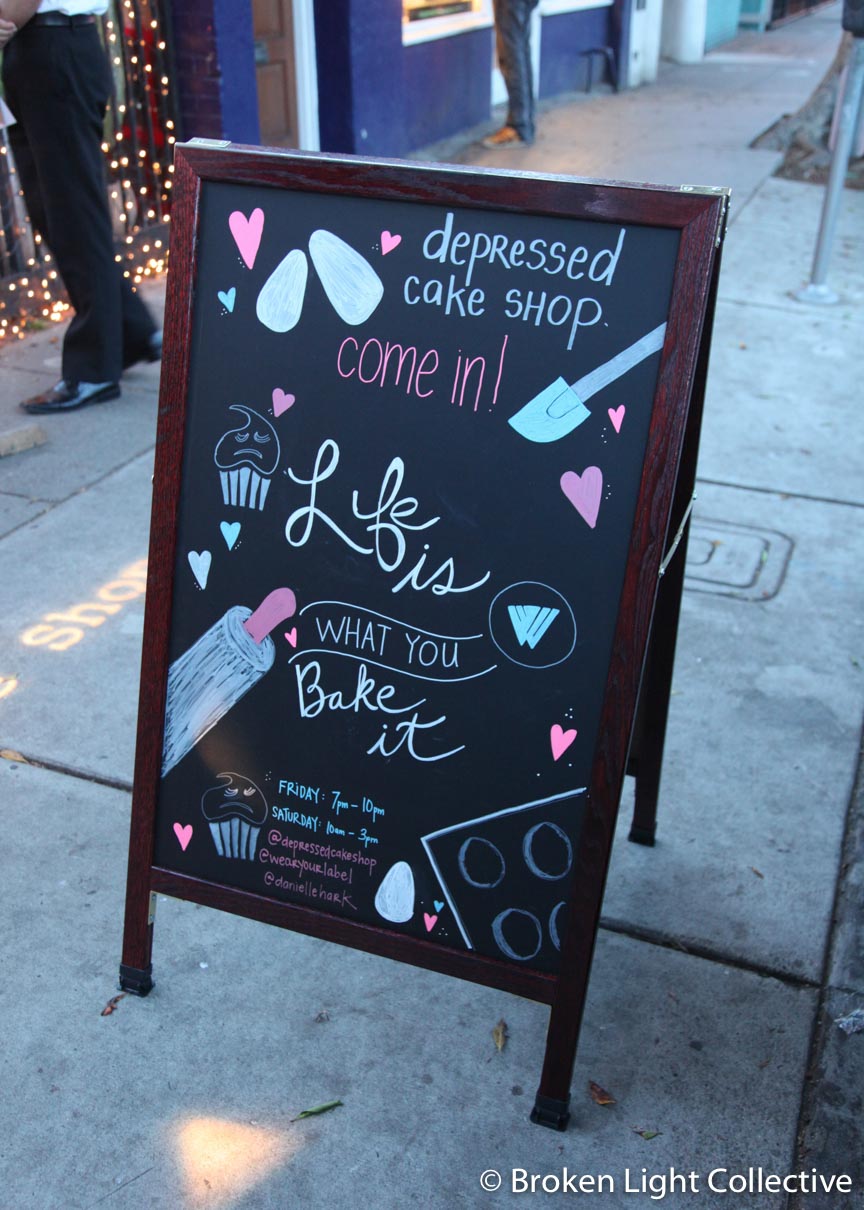 depressed
cake shop.
come in!
Life is
WHAT YOU
Bake
it
FRIDAY: 7pm - 10pm
SATURDAY: 10am - 3pm
@depressedcakeshop
@wearyourlabel
@daniellehark
Shop
© Broken Light Collective